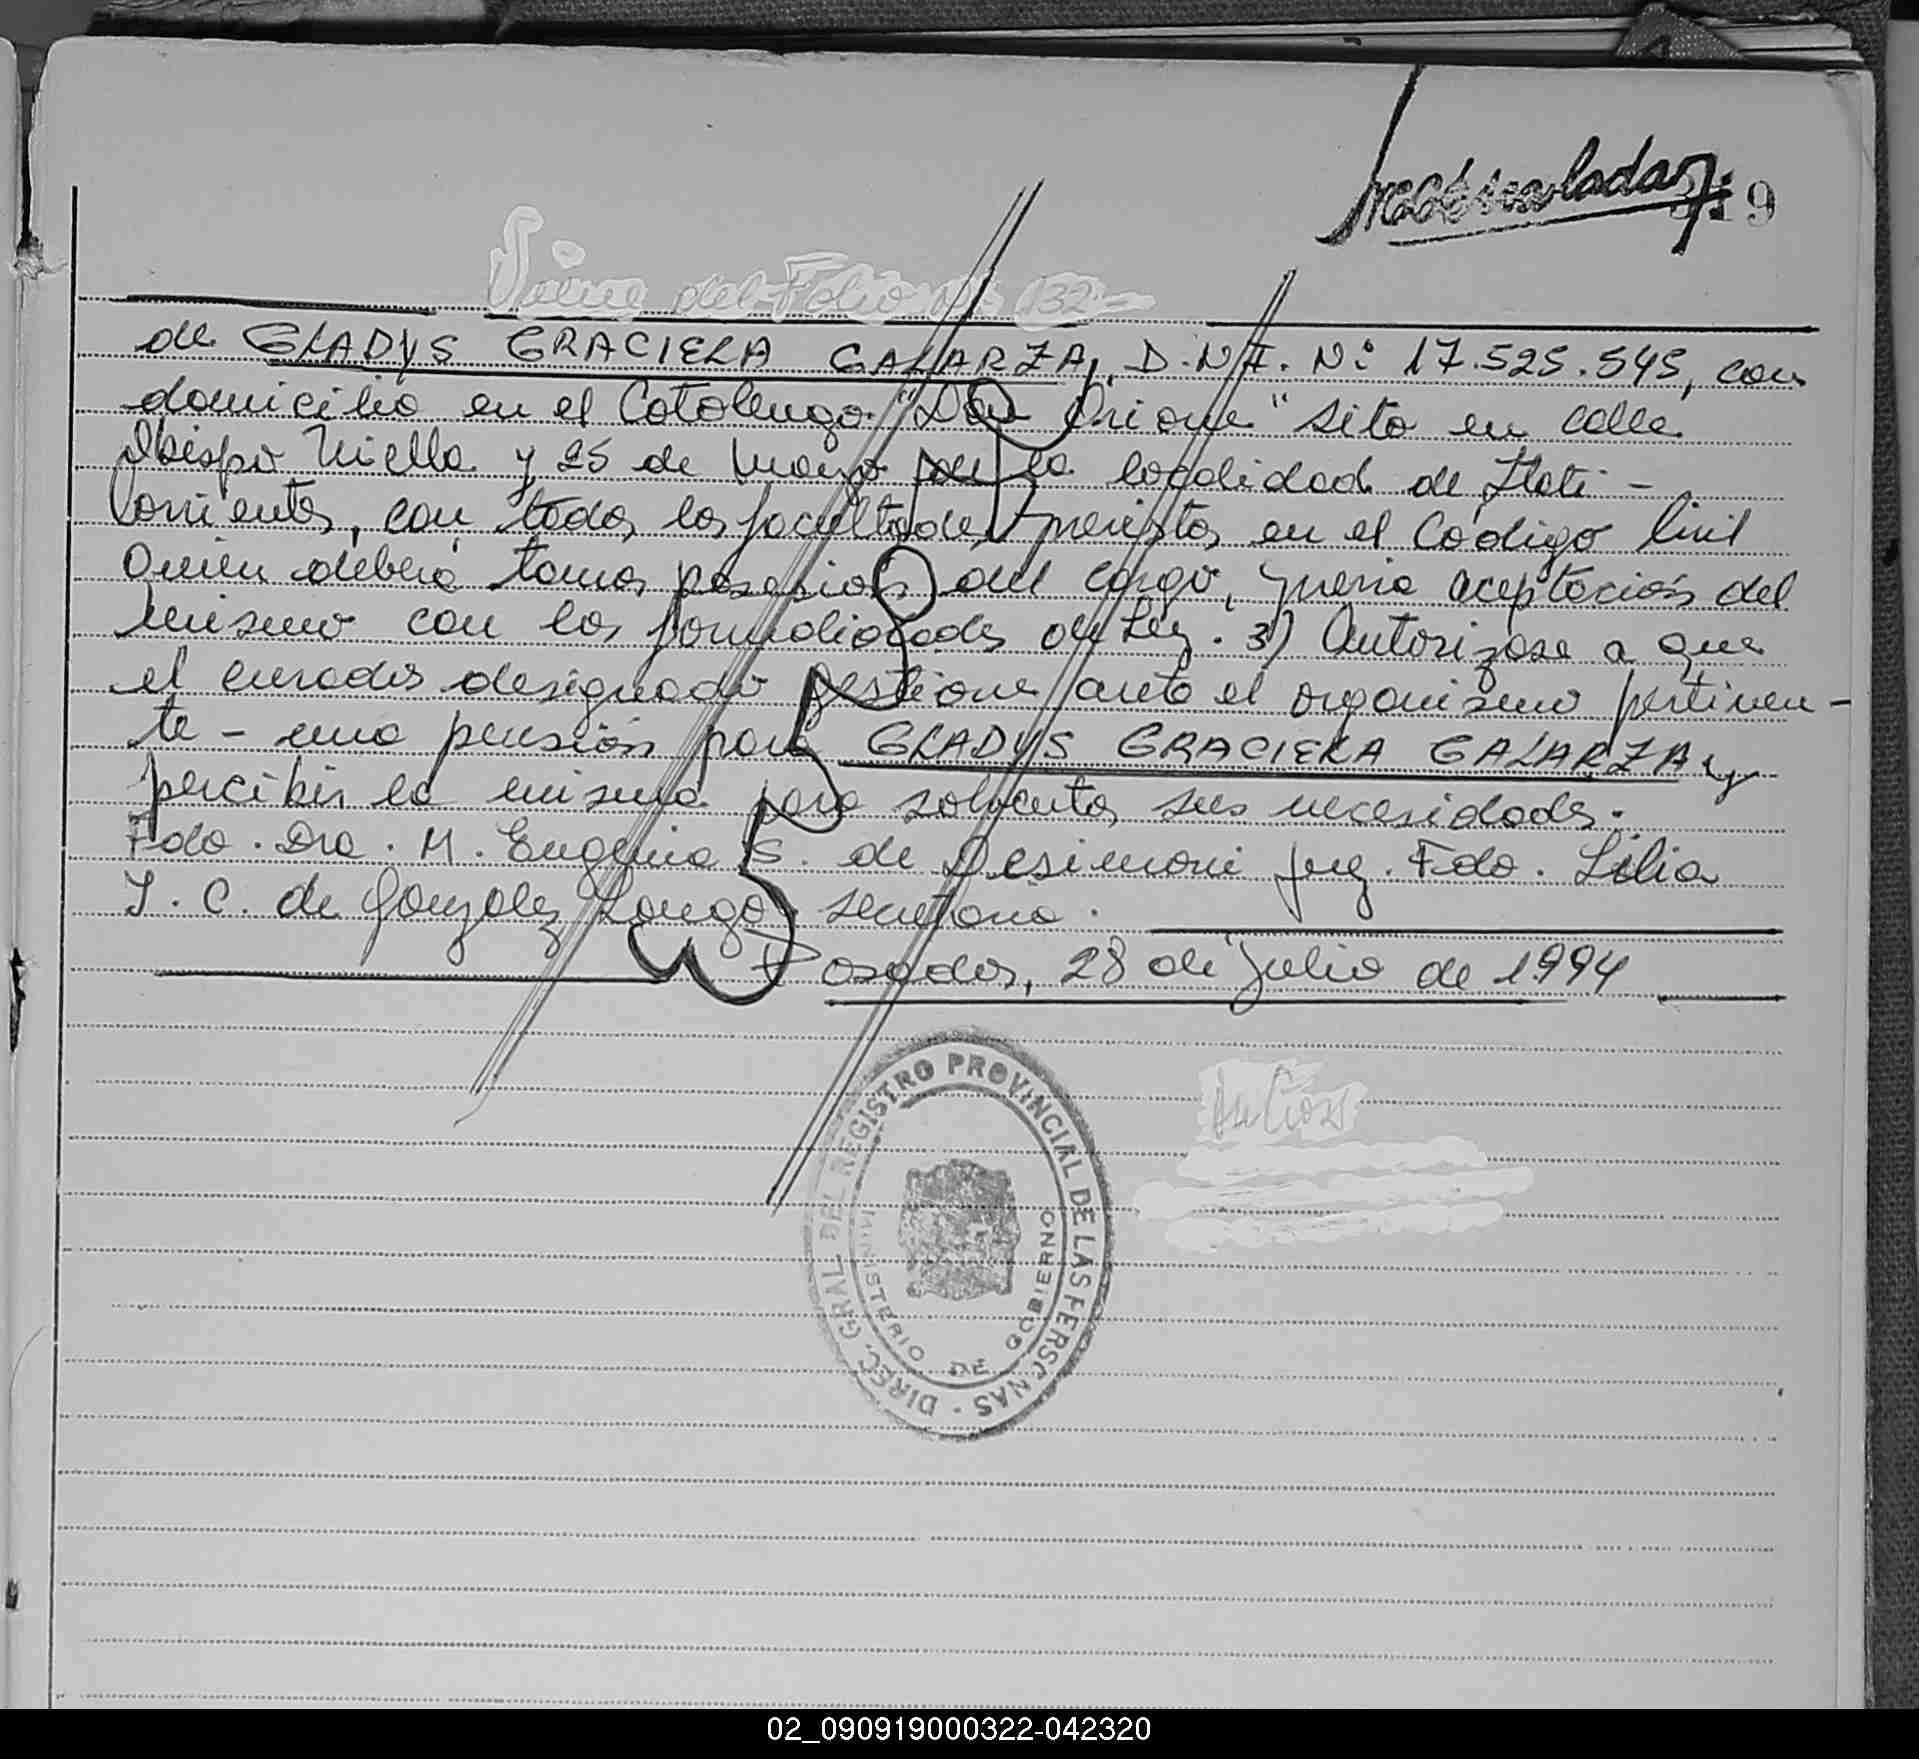 319
Viene del Folio Nº 132
de GLADYS GRACIELA GALARZA, D.N.I. Nº 17.525.545, con
domicilio en el Cotolengo "Don Orione" sito en calle
Obispo Niella y 25 de Mayo de la localidad de Itati -
Corrientes, con todas las facultades previstas en el Código Civil
Quien deberá tomar posesión del cargo, previa aceptación del
mismo con las formalidades de Ley. 3) Autorizase a que
el curador designado gestione ante el organismo pertinen-
te - una pensión para GLADYS GRACIELA GALARZA y
percibir la misma para solventar sus necesidades.
Fdo. Dra. M. Eugenia S. de Desimoni Juez. Fdo. Lilia
I. C. de Gonzalez Longo secretaria.
Posadas, 28 de Julio de 1994
DIREC. GRAL. DEL REGISTRO PROVINCIAL DE LAS PERSONAS
MINISTERIO DE GOBIERNO
02_090919000322-042320